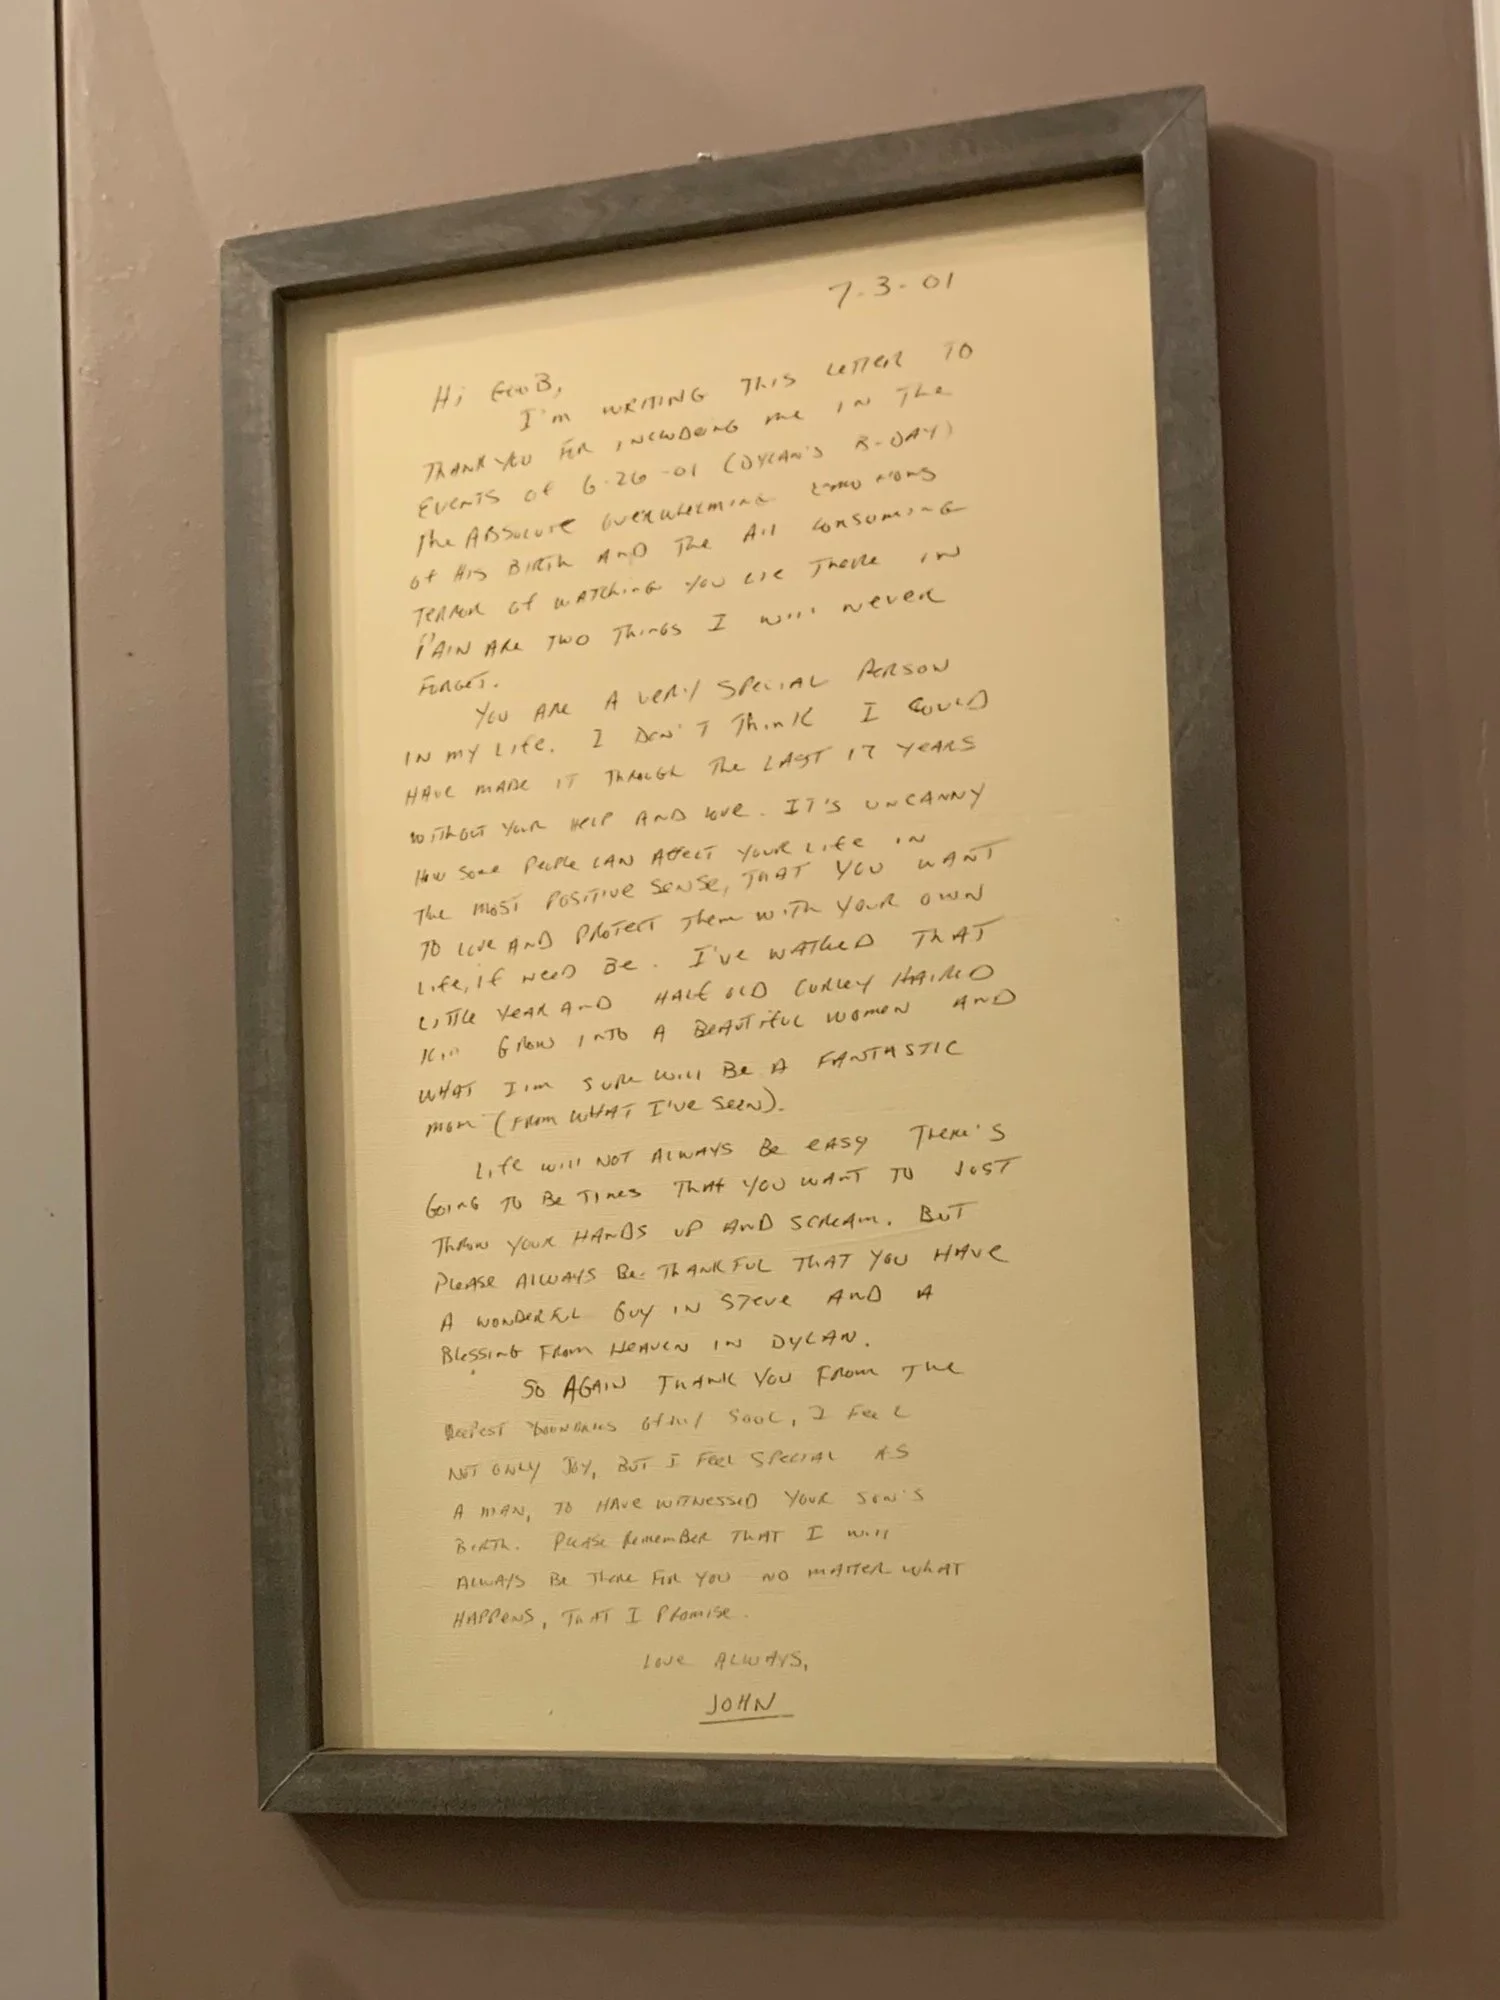 7-3-01
Hi GOOB,
I'm WRITING THIS LETTER TO
THANK YOU FOR INCLUDEING ME IN THE
EVENTS OF 6-26-01 (DYLAN'S B-DAY)
THE ABSOLUTE OVERWHELMING EMOTIONS
OF HIS BIRTH AND THE ALL CONSUMING
TERROR OF WATCHING YOU LIE THERE IN
PAIN ARE TWO THINGS I WILL NEVER
FORGET.
YOU ARE A VERY SPECIAL PERSON
IN MY LIFE. I DON'T THINK I COULD
HAVE MADE IT THROUGH THE LAST 17 YEARS
WITHOUT YOUR HELP AND LOVE. IT'S UNCANNY
HOW SOME PEOPLE CAN AFFECT YOUR LIFE IN
THE MOST POSITIVE SENSE, THAT YOU WANT
TO LOVE AND PROTECT THEM WITH YOUR OWN
LIFE, IF NEED BE. I'VE WATCHED THAT
LITTLE YEAR AND HALF OLD CURLEY HAIRED
KID GROW INTO A BEAUTIFUL WOMEN AND
WHAT I'M SURE WILL BE A FANTASTIC
MOM (FROM WHAT I'VE SEEN).
LIFE WILL NOT ALWAYS BE EASY THERE'S
GOING TO BE TIMES THAT YOU WANT TO JUST
THROW YOUR HANDS UP AND SCREAM. BUT
PLEASE ALWAYS BE THANKFUL THAT YOU HAVE
A WONDERFUL GUY IN STEVE AND A
BLESSING FROM HEAVEN IN DYLAN.
SO AGAIN THANK YOU FROM THE
DEEPEST BOUNDARIES OF MY SOUL, I FEEL
NOT ONLY JOY, BUT I FEEL SPECIAL AS
A MAN, TO HAVE WITNESSED YOUR SON'S
BIRTH. PLEASE REMEMBER THAT I WILL
ALWAYS BE THERE FOR YOU NO MATTER WHAT
HAPPENS, THAT I PROMISE.
LOVE ALWAYS,
JOHN